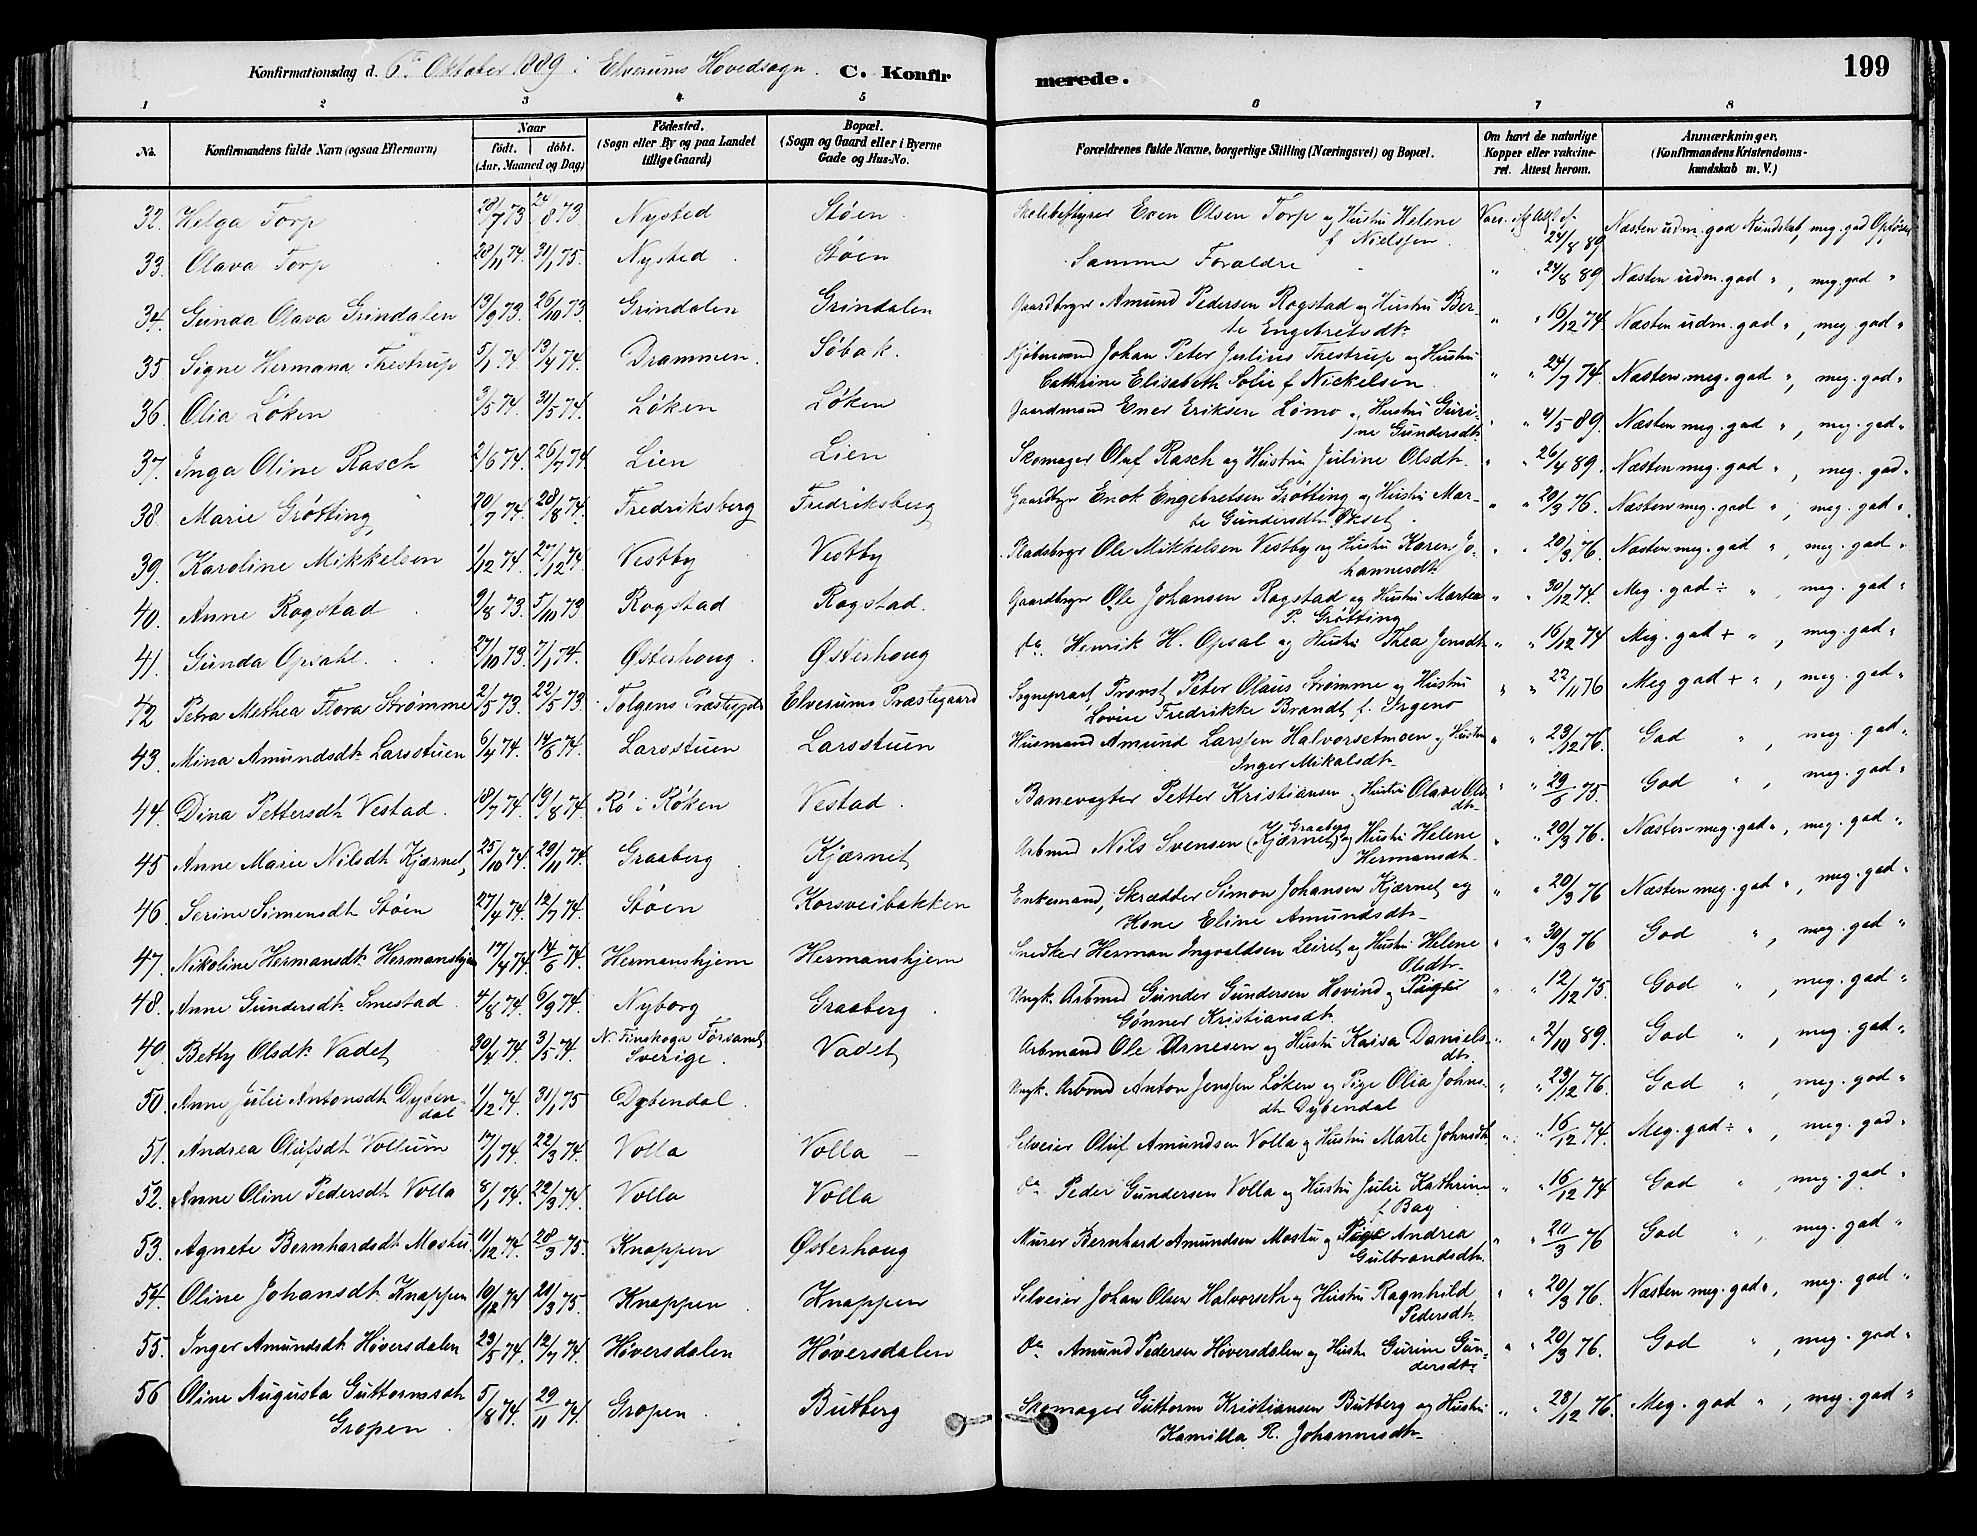 Konfirmationsdag d. 6te Oktober 1889 i Elverums Hovedsogn. C. Konfirmerede. 199
1 2 3 4 5 6 7 8
No. Konfirmandens fulde Navn (ogsaa Efternavn) Naar født. døbt. (Aar, Maaned og Dag) Fødested. (Sogn eller By og paa Landet tillige Gaard) Bopæl. (Sogn og Gaard eller i Byerne Gade og Hus-No. Forældrenes fulde Navne, borgerlige Stilling (Næringsvei) og Bopæl. Om havt de naturlige Kopper eller vakcineret. Attest herom. Anmærkninger. (Konfirmandens Kristendomskundskab m. V.)
32. Helga Torp 28/7 73 24/8 73 Nysted Støen Skolebestyrer Even Olsen Torp og Hustru Helene f Nielssen. 24/8 89 Næsten udm. god Kundskab, meg. god Opførsel
33. Olava Torp 28/11 74. 31/1 75. Nysted Støen Samme Forældre " " 24/8 89 Næsten udm. god ", meg. god "
34. Gunda Olava Grindalen 13/9 73. 26/10 73. Grindalen Grindalen Gaardbrgr Amund Pedersen Rogstad og Hustru Berte Engebretsdtr " " 16/12 74 Næsten udm. god ", meg god "
35 Signe Hermana Thestrup 5/1 74. 13/4 74. Drammen. Søbak. Kjøbmand Johan Peter Julius Thestrup og Hustru Cathrine Elisabeth Sofie f Nickelsen. " " 24/7 74 Næsten meg. god ", meg. god "
36. Olia Løken 3/5 74. 31/5 74. Løken Løken Gaardmand Ener Eriksen Lømo og Hustru Gurine Gundersdtr " " 4/5 89. Næsten meg. god ", meg. god "
37. Inga Oline Rasch 2/6 74. 26/7 74 Lien Lien Skomager Oluf Rasch og Hustru Juline Olsdtr. " " 26/4 89. Næsten meg. god ", meg. god "
38. Marie Grøtting 20/7 74. 28/8 74. Fredriksberg Fredriksberg Gaardbgr Enok Engebretsen Grøtting og Hustru Marte Gundersdtr Økset. " " 20/3 76. Næsten meg. god ", meg. god "
39. Karoline Mikkelsen 1/12 74. 27/12 74. Vestby Vestby Pladsbrgr Ole Mikkelsen Vestby og Hustru Karen Johannesdtr " " 20/3 76. Næsten meg. god ", meg. god "
40. Anne Rogstad 9/8 73. 5/10 73 Rogstad Rogstad. Gaardbrgr Ole Johansen Rogstad og Hustru Martea P. Grøtting " " 30/12 74. Meg. god ÷ ", meg. god "
41. Gunda Opsahl. 27/10 73. 7/1 74. Østerhoug. Østerhoug do. Henrik H. Opsal og Hustru Thea Jensdtr " " 16/12 74 Meg. god + ", meg. god "
42 Petra Mathea Flora Strømme 2/5 73. 22/5 73. Tolgens Præstegjeld Elverums Præstegaard Sognepræst, Provst Peter Olaus Strømme og Hustru Lovise Fredrikke Brandt f. Irgens " " 22/11 76 Meg god + ", meg. god "
43. Mina Amundsdtr Larsstuen 6/4 74. 14/6 74. Larsstuen Larsstuen Husmand Amund Larssen Halvorsetmoen og Hustru Inger Mikalsdtr " " 23/12 76. God ", meg. god "
44. Dina Pettersdtr Vestad. 18/7 74. 19/8 74. Rø i Røken Vestad. Banevogter Petter Kristiansen og Hustru Olave Olsdtr. " " 29/6 75. God ", meg. god "
45 Anne Marie Nilsdtr Kjærnet, 25/10 74. 29/11 74. Graaberg Kjærnet Arbmnd Nils Svensen (Kjærnet) Graaberg og Hustru Helene Hermansdtr " " 20/3 76. Næsten meg. god ", meg. god "
46. Serine Simensdtr Støen 27/4 74. 12/7 74. Støen Korsveibakken Enkemand, Skrædder Simon Johansen Kjærnet og Kone Eline Amundsdtr " " 20/3 76 Næsten meg. god ", meg. god "
47. Nikoline Hermansdtr Hermanshjem 17/4 74. 14/6 74. Hermanshjem Hermanshjem Snedker Herman Ingvaldsen Leiret og Hustru Helene Olsdtr. " " 30/3 76 God ", meg. god "
48. Anne Gundersdtr Smestad. 4/8 74. 6/9 74. Nyborg Graaberg. Ungk. Arbmnd Gunder Gundersen Hovind og Pige Gønner Kristiansdtr " " 12/12 75. God ", meg. god "
49. Betty Olsdtr Vadet 30/4 74. 3/5 74. N. Finskoga Församl. Sverige. Vadet Arbmand Ole Arnesen og Hustru Kaisa Danielsdtr. " " 2/10 89. God ", meg. god "
50. Anne Julie Antonsdtr Dybendal 1/12 74. 31/1 75 Dybendal. Ungk. Arbmd Anton Jenssen Løken og Pige Olia Johnsdtr Dybendal " " 23/12 76. God ", meg. god "
51. Andrea Olufsdtr Vollum 17/1 74. 22/3 74. Volla Volla – Selveier Oluf Amundsen Volla og Hustru Marte Johnsdtr " " 16/12 74. Meg. god ÷ ", meg. god "
52. Anne Oline Pedersdtr Volla 8/1 74. 22/3 74. Volla Volla do Peder Gundersen Volla og Hustru Julie Kathrine f. Bay " " 16/12 74 God ", meg. god "
53. Agnete Bernhardsdtr Mostu. 11/12 74. 28/3 75. Knappen Østerhoug Murer Bernhard Amundsen Mostu og Pige Andrea Gulbrandsdtr " " 20/3 76 God ", meg. god "
54. Oline Johansdtr Knappen 10/12 74 20/3 75. Knappen. Knappen Selveier Johan Olsen Halvorseth og Hustru Ragnhild Pedersdtr " " 20/3 76. Næsten meg. god ", meg. god "
55. Inger Amundsdtr Høversdalen 23/5 74. 12/7 74. Høversdalen Høversdalen Do Amund Pedersen Høversdalen og Hustr Gurine Gundersdtr " " 20/3 76. God ", meg. god "
56 Oline Augusta Guttormsdtr Gropen. 5/8 74. 29/11 74. Gropen. Butberg Skomager Guttorm Kristiansen Butberg og Hustru Kamilla R. Johannesdtr " " 28/12 76. Meg. god ", meg. god "